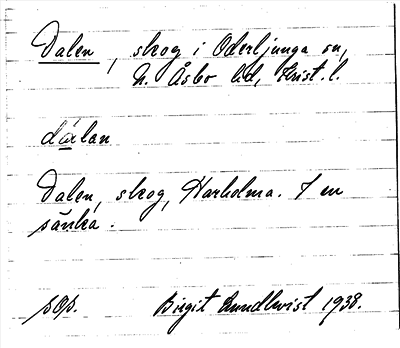 Dalen, skog i Oderljunga sn,
N. Åsbo hd, Krist. l.
daalan
Dalen, skog, Harholma. I en
sänka.
sOp. Birgit Lundkvist 1938.